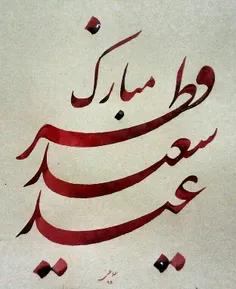 عید
سعید
فطر
مبارک